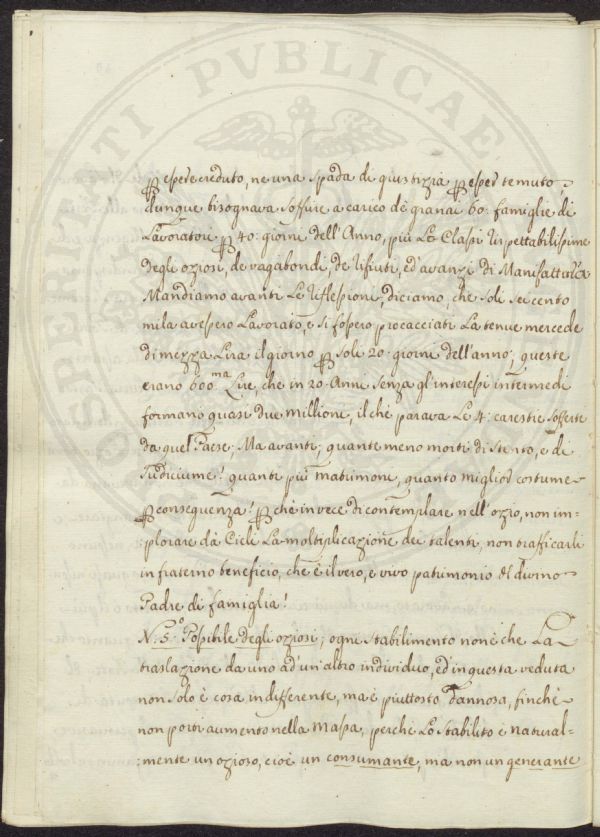 PVBLICAE
ꝑ essere creduto, ne una spada di giustizia ꝑ esser temuto;
dunque bisognava soffrire a carico de granai 60: famiglie di
Lavoratori ꝑ 40: giorni dell'Anno, più Le Classi
degli oziosi, de vagabondi, de rifiuti, ed'avanzi di Manifatture
Mandiamo avanti Le riflessioni, diciamo, che soli seicento
mila avessero Lavorato, e si fossero procacciati La tenue mercede
di mezza Lira il giorno ꝑ soli 20: giorni dell'anno; queste
erano 600.ma Lire, che in 20: Anni senza gl'interessi intermedi
formano quasi due millioni, il che parava Le 4: carestie sofferte
da quel Paese; Ma avanti; quante meno morti di stento, e di
sudiciume! quanti più matrimoni, quanto miglior costume
ꝑ conseguenza! ꝑchè in vece di contemplare nell'ozio, non im=
plorare da Cieli La moltiplicazione dei talenti, non trafficarli
in fraterno beneficio, che è il vero, e vivo patrimonio del divino
Padre di famiglia!
N: 5: Possibile degli oziosi; ogni stabilimento non è che La
traslazione da uno ad'un'altro individuo, ed in questa veduta
non solo è cosa indifferente, ma è piuttosto dannosa, finchè
non porti aumento nella Massa, perchè Lo stabilito è natural=
:mente un ozioso, cioè un consumante, ma non un generante